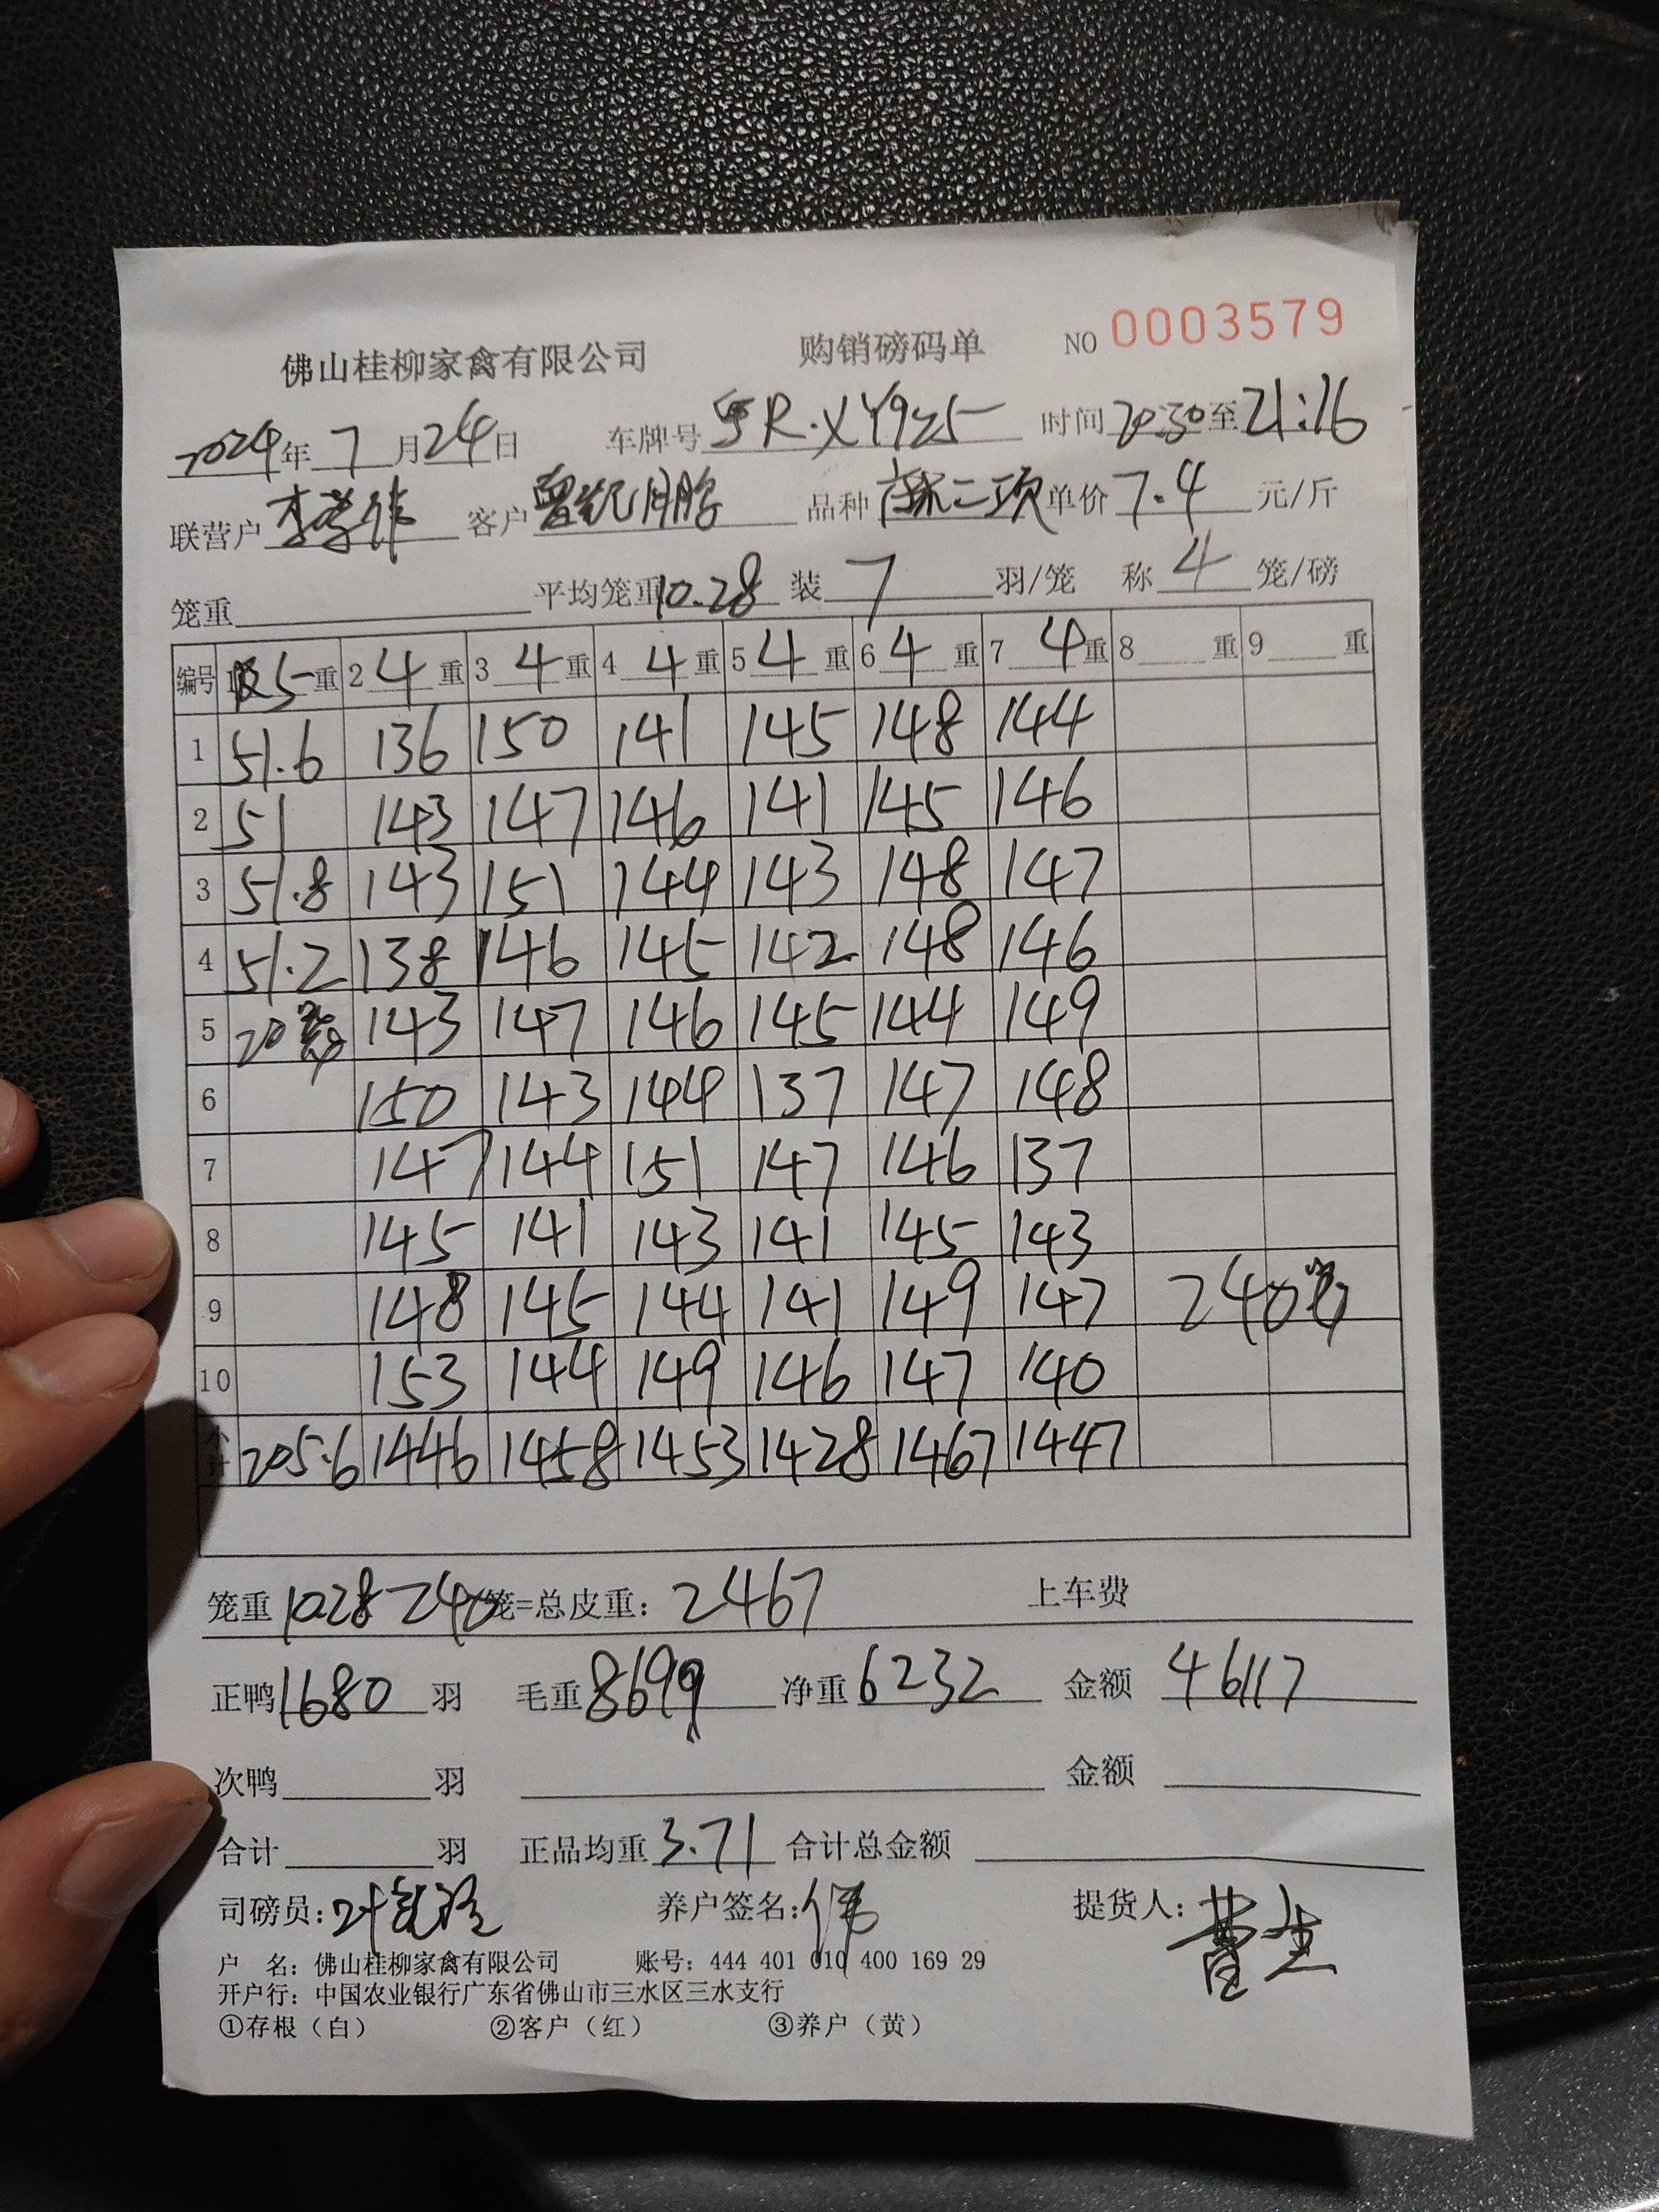 佛山桂柳家禽有限公司 购销磅码单 NO 0003579
2024年7月24日 车牌号 粤R·XY925 时间20:30至21:16
联营户 客户 品种 单价7.4元/斤
笼重 平均笼重10.28 装7羽/笼 称4笼/磅
编号 1 5重 2 4重 3 4重 4 4重 5 4重 6 4重 7 4重 8 重 9 重
1 51.6 136 150 141 145 148 144
2 51 143 147 146 141 145 146
3 51.8 143 151 144 143 148 147
4 51.2 138 146 145 142 148 146
5 20 143 147 146 145 144 149
6 150 143 144 137 147 148
7 147 144 151 147 146 137
8 145 141 143 141 145 143
9 148 145 144 141 149 147 240笼
10 153 144 149 146 147 140
小计 205.6 1446 1458 1453 1428 1467 1447
笼重10.28 240笼=总皮重: 2467 上车费
正鸭1680羽 毛重8699 净重6232 金额 46117
次鸭 羽 金额
合计 羽 正品均重3.71 合计总金额
司磅员: 养户签名:伟 提货人:
户 名: 佛山桂柳家禽有限公司 账号: 444 401 010 400 169 29
开户行: 中国农业银行广东省佛山市三水区三水支行
①存根（白） ②客户（红） ③养户（黄）